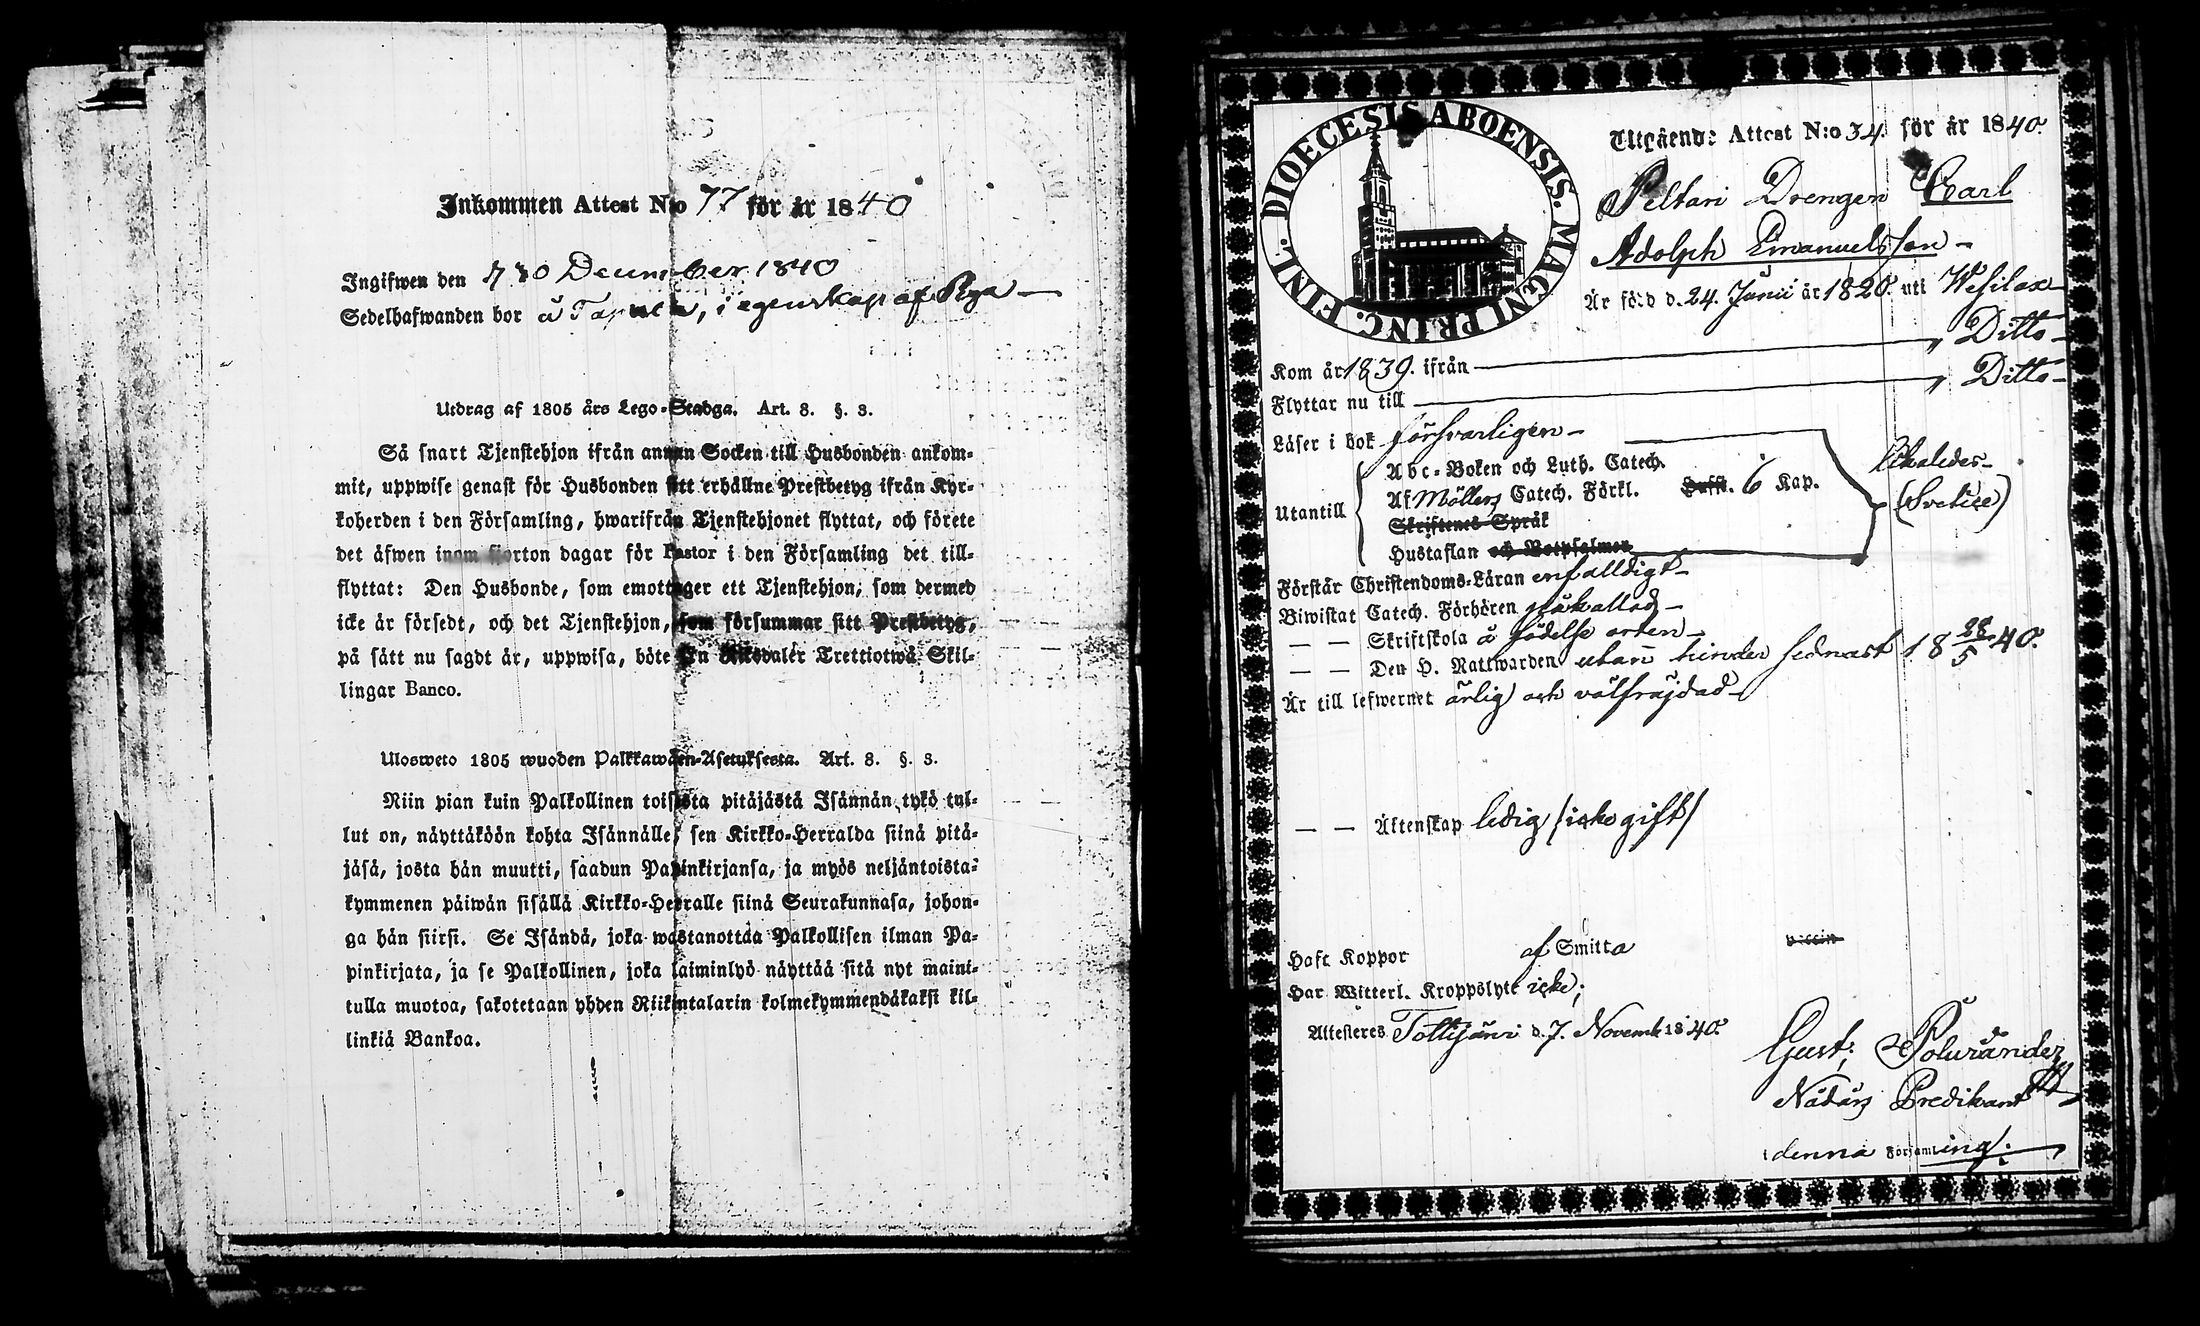 Inkommen Attest N:o 77 för år 1840
Ingifwen den 30 December 1840
Sedelhafwanden bor å, i egenskap af
Utdrag af 1805 års Lego-Stadga. Art. 8. §. 3.
Så snart Tjenstehjon ifrån annan Socken till Husbonden ankom-
mit, uppwise genast för Husbonden sitt erhållne Prestbetyg ifrån Kyr-
koherden i den Församling, hwarifrån Tjenstehjonet flyttat, och förete
det äfwen inom fjorton dagar för Pastor i den Församling det till-
flyttat: Den Husbonde, som emottager ett Tjenstehjon, som dermed
icke är försedt, och det Tjenstehjon, som försummar sitt Prestbetyg,
på sätt nu sagdt är, uppwisa, böte En Riksdaler Trettiotwå Skil-
lingar Banco.
Ulosweto 1805 wuoden Palkkawäen-Asetuksesta. Art. 8. §. 3.
Niin pian kuin Palkollinen toisesta pitäjästä Isännän tykö tul-
lut on, näyttäköön kohta Isännälle, sen Kirkko-Herralda siinä pitä-
jäsä, josta hän muutti, saadun Papinkirjansa, ja myös neljäntoista-
kymmenen päiwän sisällä Kirkko-Herralle siinä Seurakunnasa, johon-
ga hän siirsi. Se Isändä, joka wastanottaa Palkollisen ilman Pa-
pinkirjata, ja se Palkollinen, joka laiminlyö näyttää sitä nyt maini-
tulla muotoa, sakotetaan yhden Riikintalarin kolmekymmendäkaksi kil-
linkiä Bankoa.
DIOECESIS ABOENSIS. MAGNI PRINC. FINL.
Utgående Attest N:o 34. för år 1840.
Peltari Drengen Carl
Adolph Emanuelsson
Är född d. 24. Junii år 1820. uti Wesilax
Kom år 1839. ifrån Ditto
Flyttar nu till Ditto
Läser i bok försvarligen
Utantill
Abc-Boken och Luth. Catech.
Af Möllers Catech. Förkl. Hufst. 6 Kap.
Skriftenes Språk
Hustaflan och Botpsalmer
likaledes
(Svetice)
Förstår Christendoms-Läran enfalldigt
Biwistat Catech. Förhören påkallad
— — Skriftskola å födelse orten
— — Den H. Nattwarden utan hinder sednast 18 28/5 40.
Är till lefwernet ärlig och välfräjdad
— — Äktenskap ledig /icke gift/
Haft Koppor af Smitta Vaccin
Har Witterl. Kroppslyte icke;
Attesteres Tottijärvi d. 7. Novemb. 1840.
Gust; Polviander
Nådårs Predikant
i denna Församling.